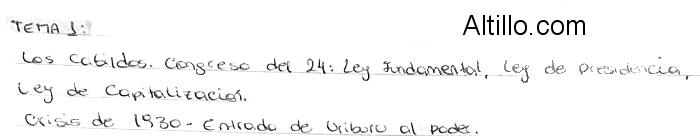 TEMA 1:
Altillo.com
Los Cabildos. Congreso del 24: Ley Fundamental, Ley de presidencia,
Ley de Capitalización.
Crisis de 1930 - Entrada de Uriburu al poder.